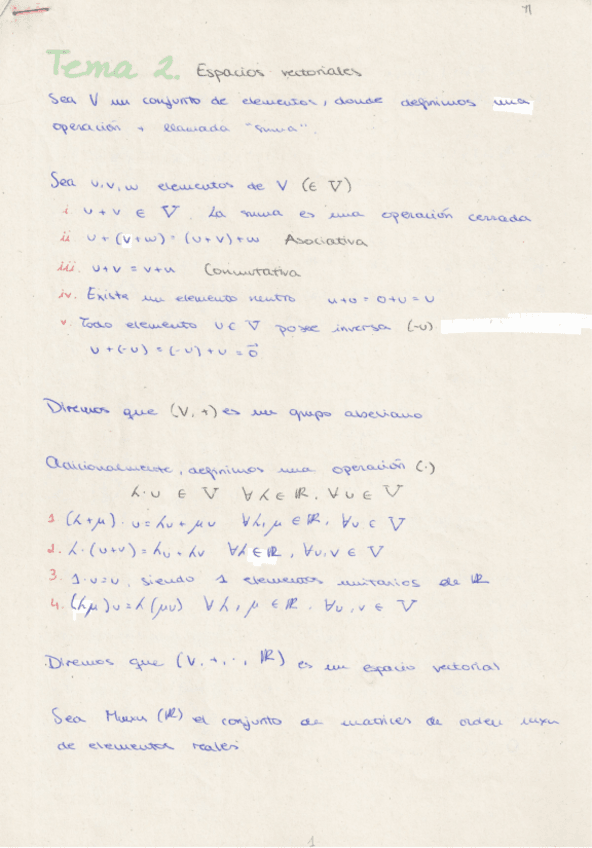 Tema 2. Espacios vectoriales
Sea V un conjunto de elementos, donde definimos una
operación + llamada "suma".
Sea u,v,w elementos de V (∈ V)
i. u+v ∈ V. La suma es una operación cerrada
ii. u+(v+w)=(u+v)+w Asociativa
iii. u+v=v+u Conmutativa
iv. Existe un elemento neutro u+0=0+u=u
v. Todo elemento u∈V posee inversa (-u)
u+(-u)=(-u)+u=0⃗
Diremos que (V,+) es un grupo abeliano
Adicionalmente, definimos una operación (·)
λ·u ∈ V ∀λ∈ℝ, ∀u∈V
1. (λ+μ)·u=λu+μu ∀λ,μ∈ℝ, ∀u∈V
2. λ·(u+v)=λu+λv ∀λ∈ℝ, ∀u,v∈V
3. 1·u=u, siendo 1 elementos unitarios de ℝ
4. (λμ)u=λ(μu) ∀λ,μ∈ℝ. ∀u,v∈V
Diremos que (V,+,·,ℝ) es un espacio vectorial
Sea Mmxn(ℝ) el conjunto de matrices de orden mxn
de elementos reales
1